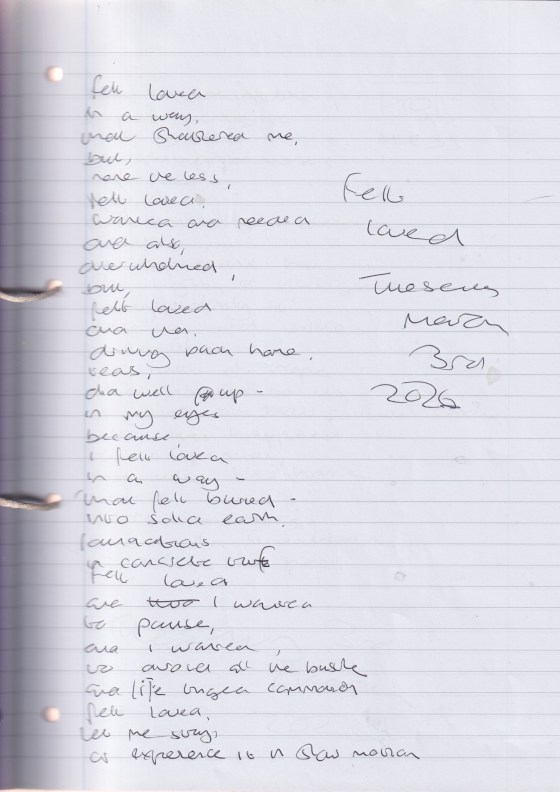 felt loved
in a way,
that shattered me,
but,
none the less,
felt loved.
wanted and needed
and also,
overwhelmed,
but,
felt loved
and
driving back home.
tears,
did well up -
in my eyes
because,
I felt loved
in a way -
that felt buried -
into solid earth.
foundations
in concrete
felt loved
and I wanted
to pause,
and I wanted,
to avoid all the bustle
and life tinged commotion
felt loved.
let me stay,
as experience is in slow motion
Felt
loved
Tuesday
March
3rd
2026